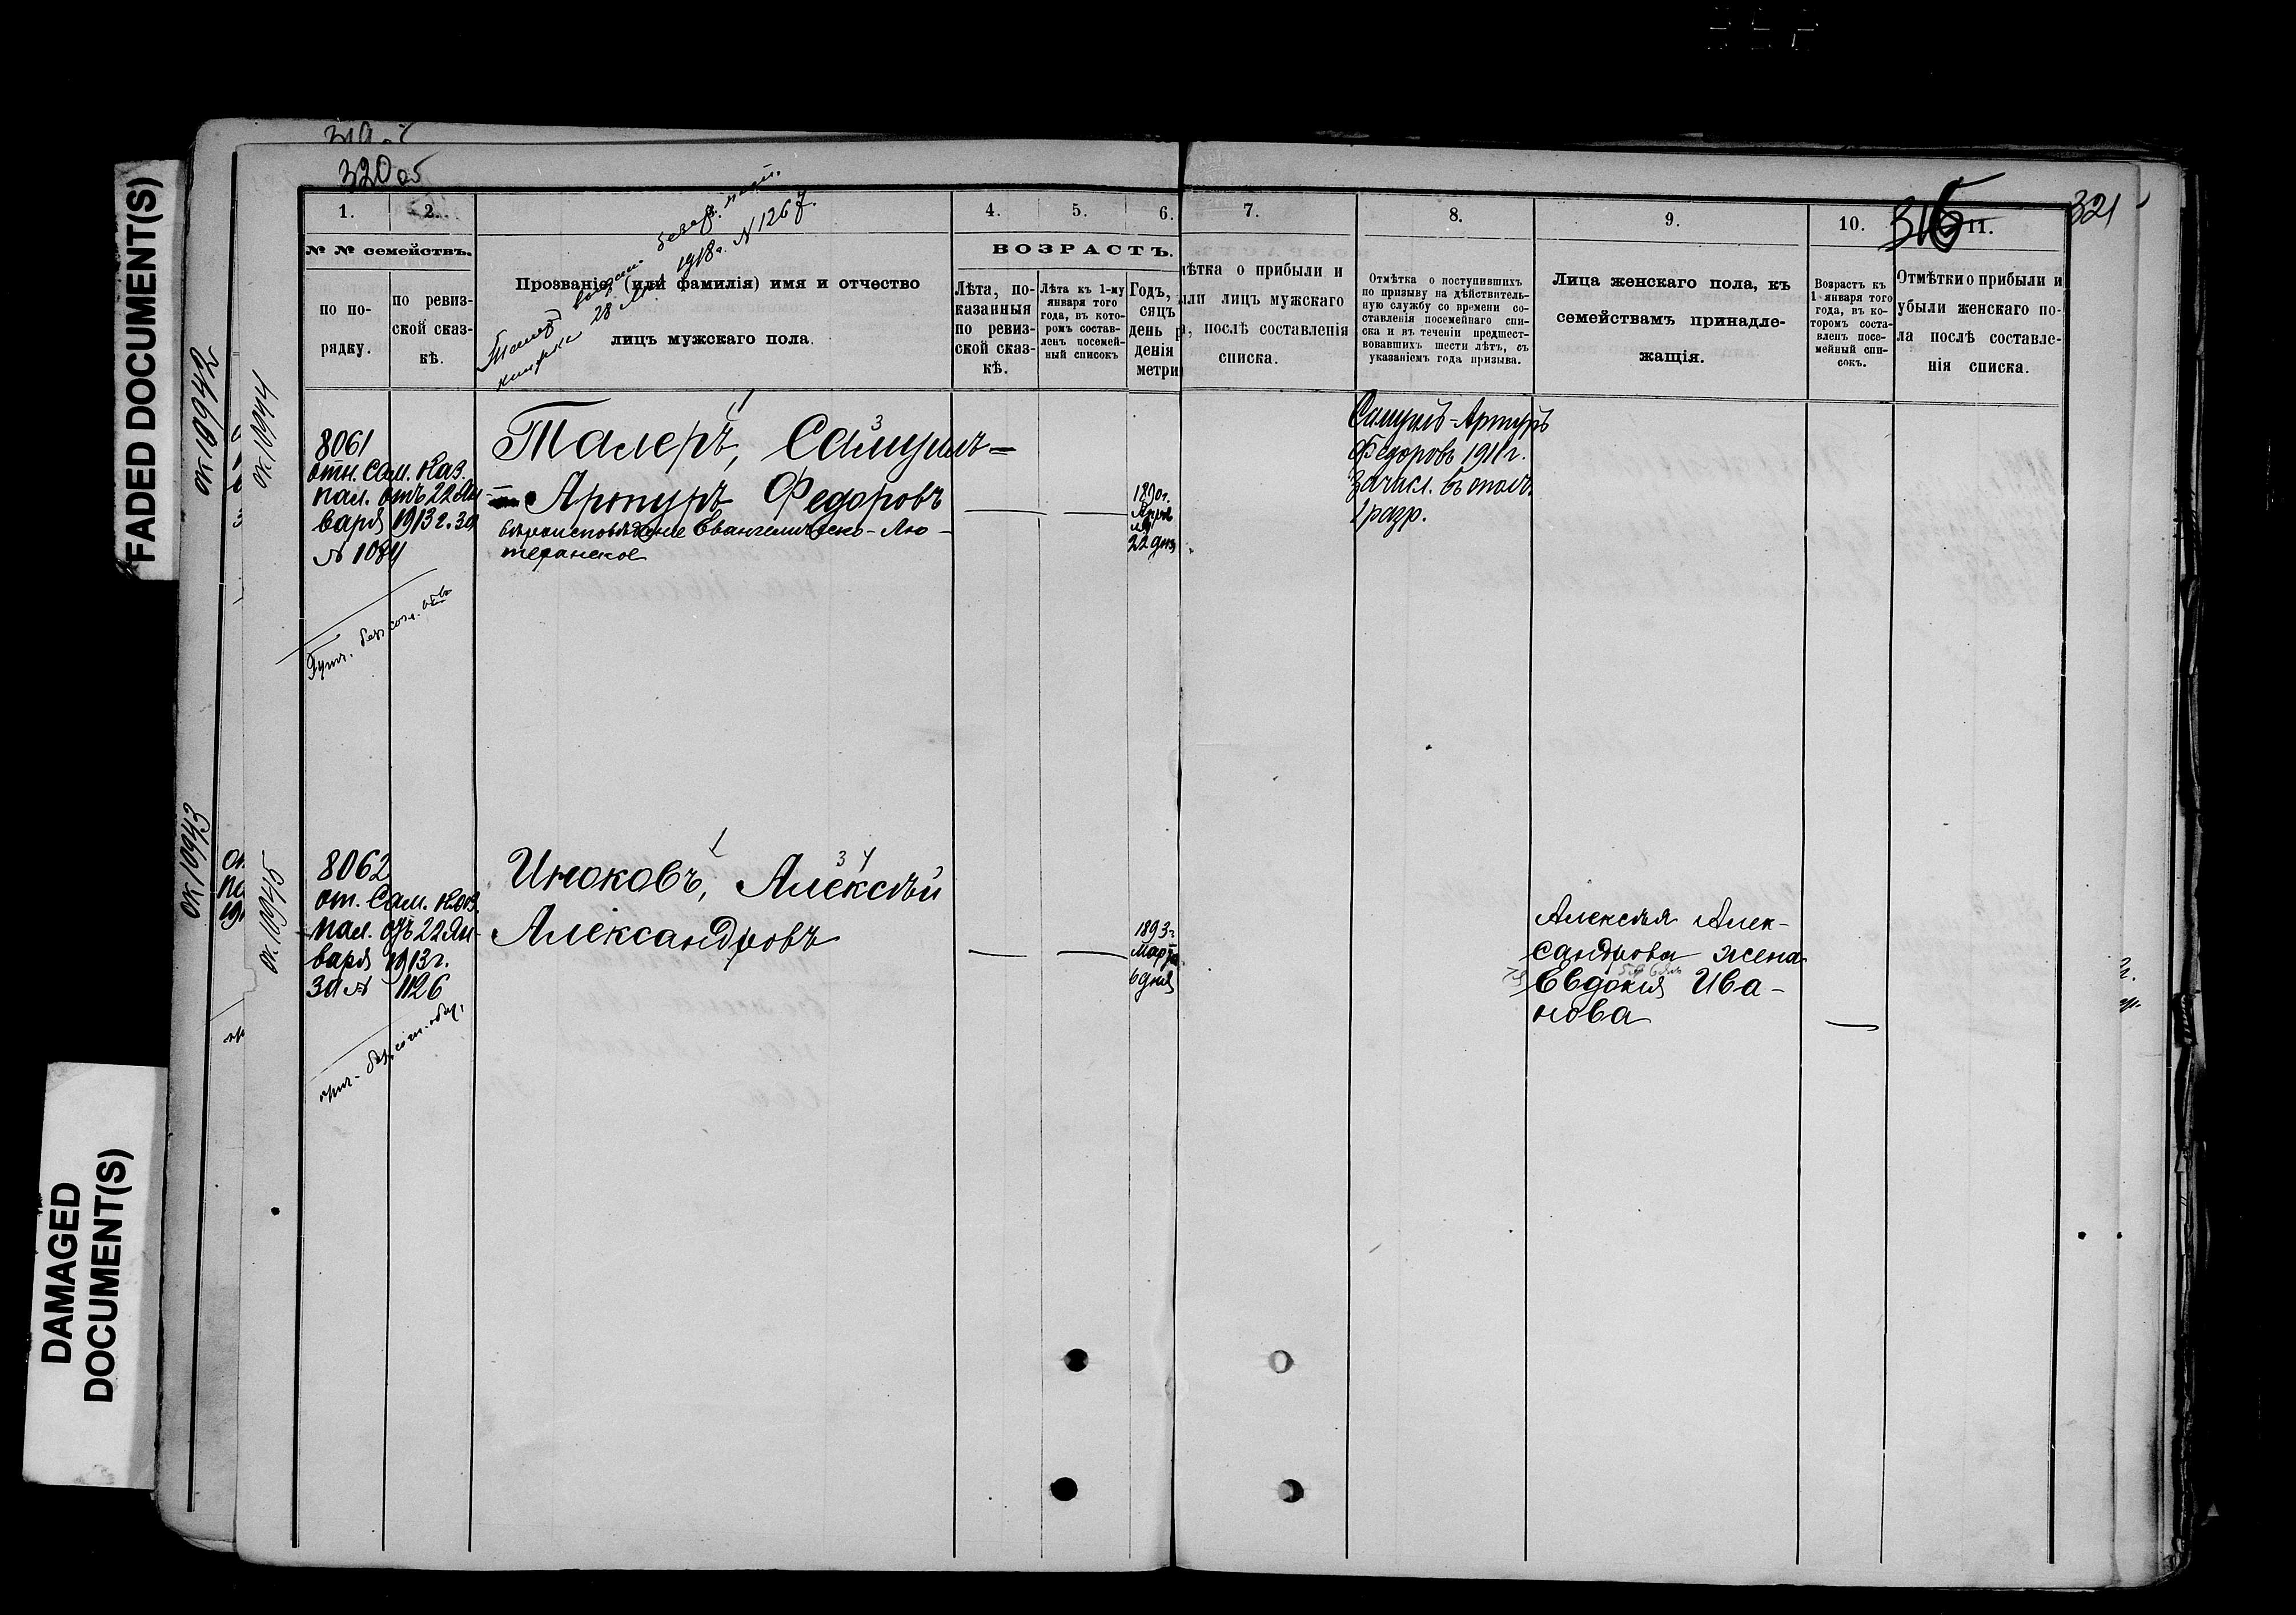 FADED DOCUMENT(S)
DAMAGED
DOCUMENT(S)
ок 10942
ок 10943
ок 10944
ок 10945
320 об
321
1.
2.
4.
5.
6.
7.
8.
9.
10.
11.
№ № семействъ.
по по-
рядку.
по ревиз-
ской сказ-
кѣ.
Прозваніе (или фамилія) имя и отчество
лицъ мужскаго пола.
1918г. N 1267.
28
ВОЗРАСТЪ.
Лѣта, по-
казанныя
по ревиз-
ской сказ-
кѣ.
Лѣта къ 1-му
января того
года, въ кото-
ромъ состав-
ленъ посемей-
ный списокъ
Годъ,
сяцъ
день р
денія
метри
ѣтка о прибыли и
ыли лицъ мужскаго
, послѣ составленія
списка.
Отмѣтка о поступившихъ
по призыву на дѣйствитель-
ную службу со времени со-
ставленія посемейнаго спи-
ска и въ теченіи предшест-
вовавшихъ шести лѣтъ, съ
указаніемъ года призыва.
Лица женскаго пола, къ
семействамъ принадле-
жащія.
Возрастъ къ
1 января того
года, въ ко-
торомъ соста-
вленъ посе-
мейный спи-
сокъ.
Отмѣтки о прибыли и
убыли женскаго по-
ла послѣ составле-
нія списка.
8061
отн. Сам. Каз.
пал. отъ 22 Ян-
варя 1913 г. за
№ 1084
Талеръ, Самуилъ=
Артуръ Федоровъ
вѣроисповѣданіе Евангелическо-Лю-
теранское
1890г.
Апрѣ
ля
22 дня
Самуилъ-Артуръ
Федоровъ 1911 г.
зачисл. въ ополч.
1 разр.
8062
от. Сам. Каз.
пал. отъ 22 Ян-
варя 1913 г.
за № 1126
Иноковъ, Алексѣй
Александровъ
1893 г.
Марта
6 дня
Алексѣя Алек-
сандрова жена
Евдокія Ива-
нова